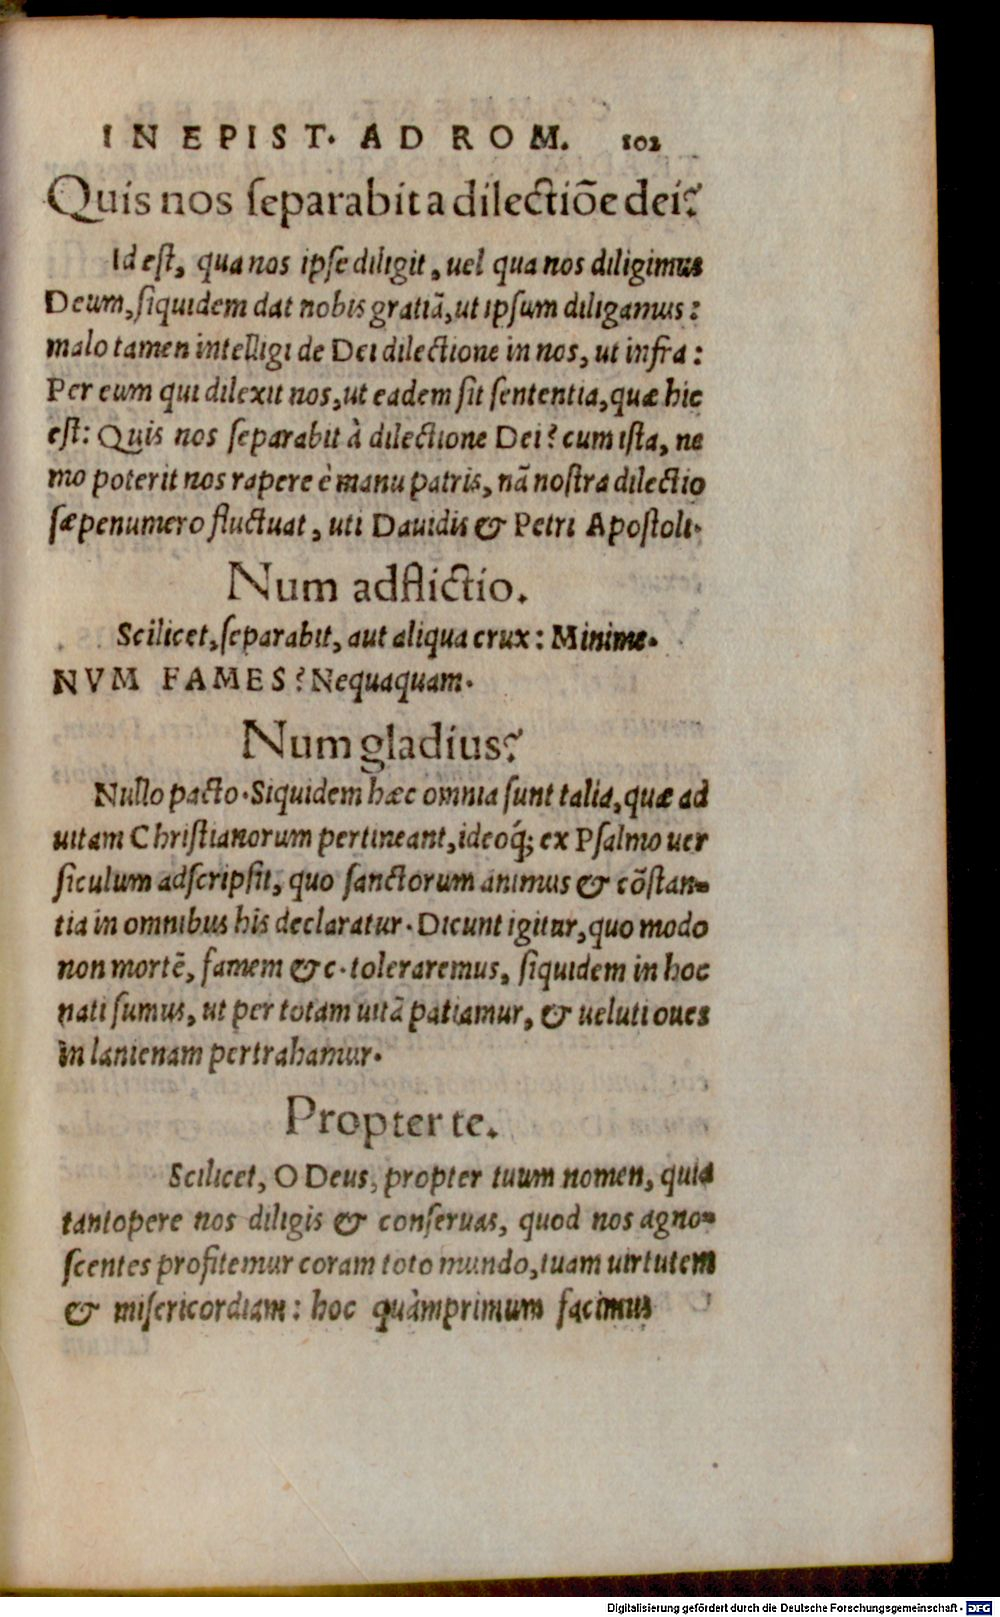 IN EPIST. AD ROM. 102
Quis nos ſeparabit a dilectiōe dei?
Id eſt, qua nos ipſe diligit, uel qua nos diligimus
Deum, ſiquidem dat nobis gratiā, ut ipſum diligamus:
malo tamen intelligi de Dei dilectione in nos, ut infra:
Per eum qui dilexit nos, ut eadem ſit ſententia, quæ hic
eſt: Quis nos ſeparabit à dilectione Dei? cum iſta, ne
mo poterit nos rapere è manu patris, nā noſtra dilectio
ſæpenumero fluctuat, uti Dauidis & Petri Apoſtoli.
Num adflictio.
Scilicet, ſeparabit, aut aliqua crux: Minime.
NVM FAMES? Nequaquam.
Num gladius?
Nullo pacto. Siquidem hæc omnia ſunt talia, quæ ad
uitam Chriſtianorum pertineant, ideoq́; ex Pſalmo uer
ſiculum adſcripſit, quo ſanctorum animus & cōſtan-
tia in omnibus his declaratur. Dicunt igitur, quo modo
non mortē, famem &c. toleraremus, ſiquidem in hoc
nati ſumus, ut per totam uitā patiamur, & ueluti oues
in lanienam pertrahamur.
Propter te.
Scilicet, O Deus, propter tuum nomen, quia
tantopere nos diligis & conſeruas, quod nos agno-
ſcentes profitemur coram toto mundo, tuam uirtutem
& miſericordiam: hoc quàmprimum facimus
Digitalisierung gefördert durch die Deutsche Forschungsgemeinschaft - DFG